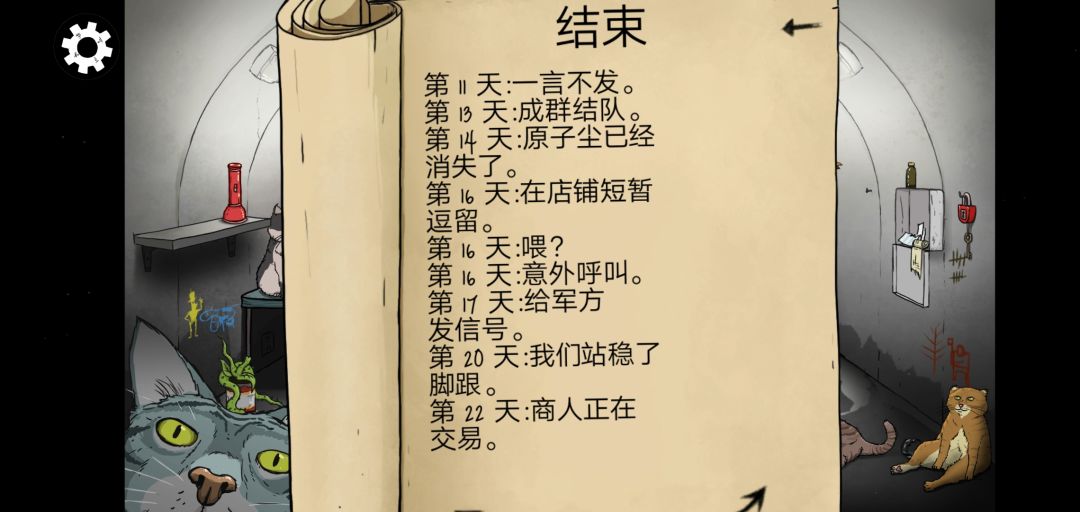 结束
第 11 天:一言不发。
第 13 天:成群结队。
第 14 天:原子尘已经
消失了。
第 16 天:在店铺短暂
逗留。
第 16 天:喂?
第 16 天:意外呼叫。
第 17 天:给军方
发信号。
第 20 天:我们站稳了
脚跟。
第 22 天:商人正在
交易。